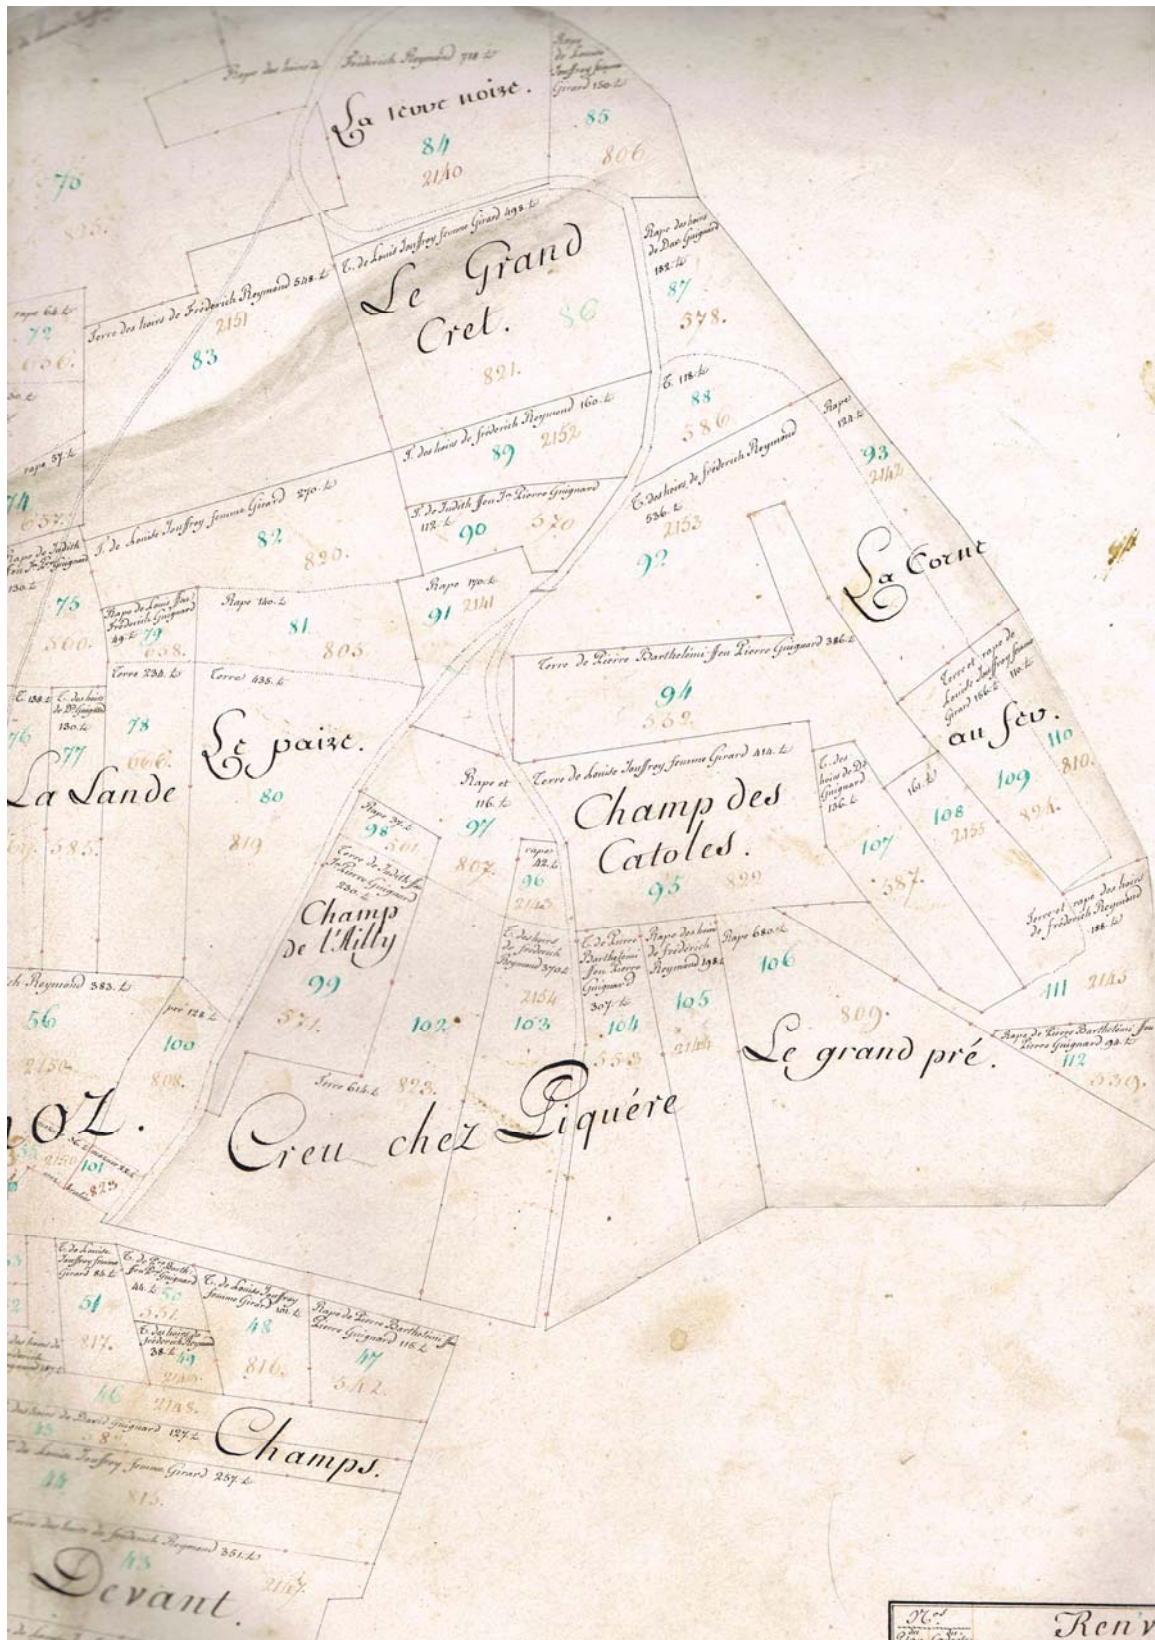 Rape des hoirs de Fréderich Reymond 718. t.
La reuve noire.
84
2140
Rape
de Louise
Jouffroy femme
Girard 150. t.
85
806
76
825.
T. de Louise Jouffroy femme Girard 498. t.
Le Grand
Cret.
86
821.
Rape des hoirs
de Dav. Guignard
132. t.
87
578.
Terre des hoirs de Fréderich Reymond 548. t.
2151
83
rape 64. t.
72
656.
T. 118. t.
88
586
T. des hoirs de fréderich Reymond 160. t.
89 2152
Rape
124. t.
93
2142
rape 37. t.
74
657.
T. de Louise Jouffroy femme Girard 270. t.
82
820.
T. de Judith feu Jn. Pierre Guignard
112. t.
90 570
T. des hoirs de fréderich Reymond
536. t.
2153
92
La Corne
Rape de Judith
feu Jn. Pre. Guignard
130. t.
75
560.
Rape de Louis feu
Fréderich Guignard
49. t. 79
658.
Rape 140. t.
81
805
Rape 170. t.
91 2141
Terre de Pierre Barthelemi feu Pierre Guignard 386. t.
94
552.
Terre et rape de
Louise Jouffroy femme
Girard 166. t. 110. t.
au fey.
110
810.
109
824.
T. 138. t.
76
T. des hoirs
de Dd. Guignard
130. t.
77
585.
La Lande
Terre 234. t.
78
666.
Terre 435. t.
Le paire.
80
819
Rape et
116. t.
97
807.
Terre de Louise Jouffroy femme Girard 414. t.
Champ des
Catoles.
95 822
T. des
hoirs de Dd.
Guignard
136. t.
107
587.
161. t.
108
2155
Rape 37. t.
98 561
Terre de Judith feu
Jn. Pierre Guignard
230. t.
Champ
de l'Milly
99
571.
rape
42. t.
96
2143
Terre et rape des hoirs
de fréderich Reymond
188. t.
111 2145
T. des hoirs
de fréderich
Reymond 370. t.
2154
103
T. de Pierre
Barthelemi
feu Pierre
Guignard
307. t.
104
553
Rape des hoirs
de fréderich
Reymond 198. t.
105
2144
Rape 680. t.
106
809.
Le grand pré.
Rape de Pierre Barthelemi feu
Pierre Guignard 94. t.
112
539.
Reymond 383. t.
56
2150
pré 128. t.
100
808.
102
Terre 614. t. 823.
Creu chez Piquére
oz.
101
823
T. de Louise
Jouffroy femme
Girard 84. t.
51
817.
T. de Pre. Barth.
feu Pre. Guignard
44. t. 50
551.
T. des hoirs de
fréderich Reymond
38. t. 49
2149.
T. de Louise Jouffroy
femme Girard 101. t.
48
816.
Rape de Pierre Barthelemi feu
Pierre Guignard 115. t.
47
542.
46 2148.
des hoirs de David Guignard 127. t.
45
Champs.
de Louise Jouffroy femme Girard 257. t.
44
815.
Terre des hoirs de fréderich Reymond 351. t.
43
2147.
Devant.
Nos.
du du
Plan Cadastre
Renv